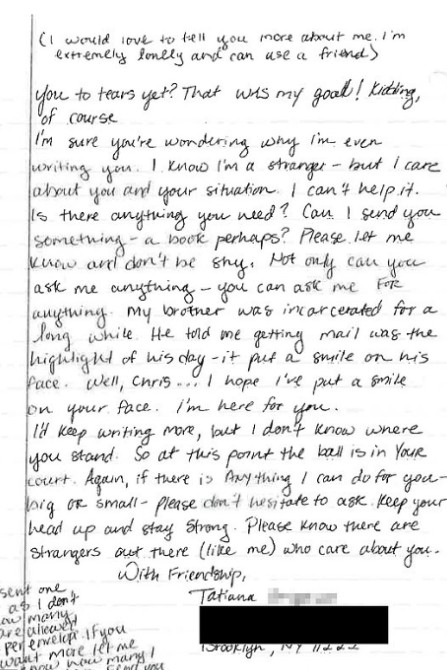 (I would love to tell you more about me. I'm
extremely lonely and can use a friend)
you to tears yet? That was my goal! Kidding,
of course
I'm sure you're wondering why I'm even
writing you. I know I'm a stranger - but I care
about you and your situation. I can't help it.
Is there anything you need? Can I send you
something - a book perhaps? Please let me
know and don't be shy. Not only can you
ask me anything - you can ask me FOR
anything. My brother was incarcerated for a
long while. He told me getting mail was the
highlight of his day - it put a smile on his
face. Well, Chris... I hope I've put a smile
on your face. I'm here for you.
I'd keep writing more, but I don't know where
you stand. So at this point the ball is in YOUR
court. Again, if there is ANYthing I can do for you -
big or small - please don't hesitate to ask. Keep your
head up and stay strong. Please know there are
strangers out there (like me) who care about you.
With Friendship,
Tatiana
Brooklyn, NY 11222
sent one
as I don't
how many
are allowed
per envelope. If you
want more let me
know how many I